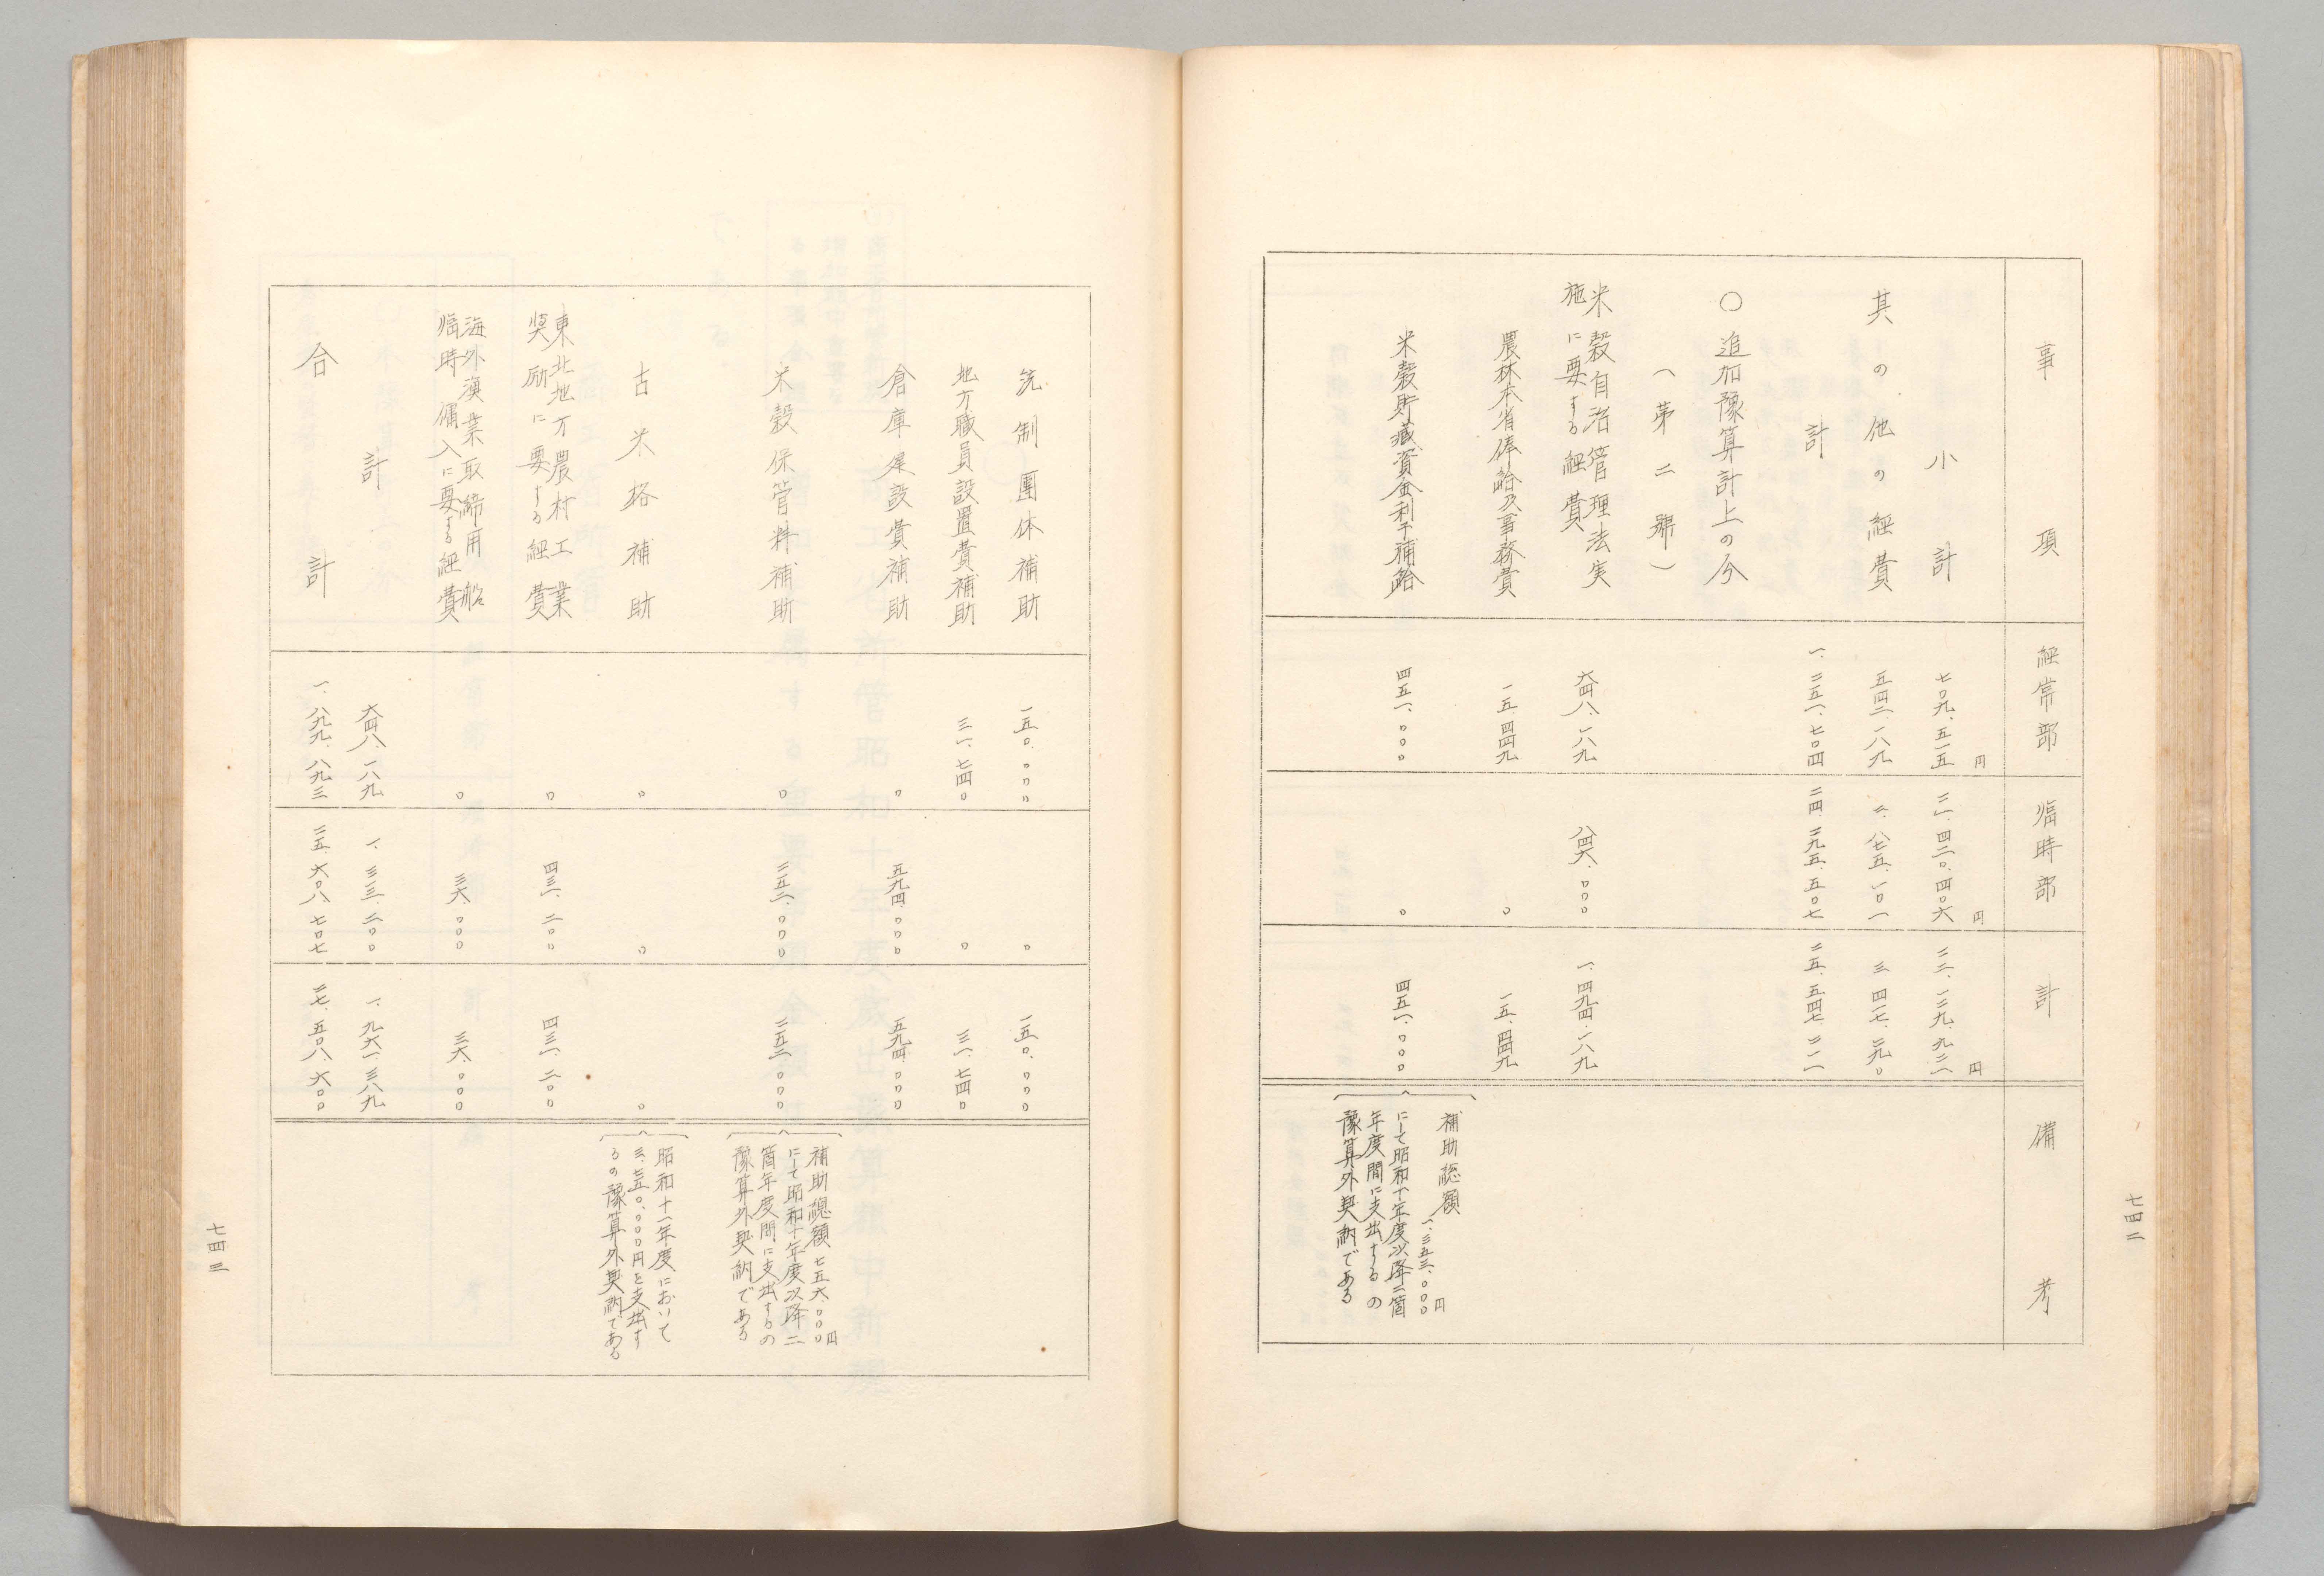 事項
経常部
臨時部
計
備考
小計
七〇九、五一五円
二一、四二〇、四〇六円
二二、一二九、九二一円
其の他の経費
五四二、一八九
二、八七五、一〇一
三、四一七、二九〇
計
一、二五一、七〇四
二四、二九五、五〇七
二五、五四七、二一一
〇追加豫算計上の分
（第二號）
米穀自治管理法実
施に要する経費
六四八、一八九
八四六、〇〇〇
一、四九四、一八九
農林本省俸給及事務費
一五、四四九
〇
一五、四四九
米穀貯蔵資金利子補給
四五一、〇〇〇
〇
四五一、〇〇〇
補助総額
一、三五三、〇〇〇円
にして昭和十一年度以降二箇
年度間に支出するの
豫算外契約である
七四二
統制團体補助
一五〇、〇〇〇
〇
一五〇、〇〇〇
地方職員設置費補助
三一、七四〇
〇
三一、七四〇
倉庫建設費補助
〇
五九四、〇〇〇
五九四、〇〇〇
米穀保管料補助
〇
二五二、〇〇〇
二五二、〇〇〇
補助總額七五六、〇〇〇円
にして昭和十一年度以降二
箇年度間に支出するの
豫算外契約である
古米格補助
〇
〇
〇
昭和十一年度において
三、七五〇、〇〇〇円を支出す
るの豫算外契約である
東北地方農村工業
奨励に要する経費
〇
四三一、二〇〇
四三一、二〇〇
海外漁業取締用船
臨時傭入に要する経費
〇
三六、〇〇〇
三六、〇〇〇
計
六四八、一八九
一、三一三、二〇〇
一、九六一、三八九
合計
一、八九九、八九三
二五、六〇八、七〇七
二七、五〇八、六〇〇
七四三